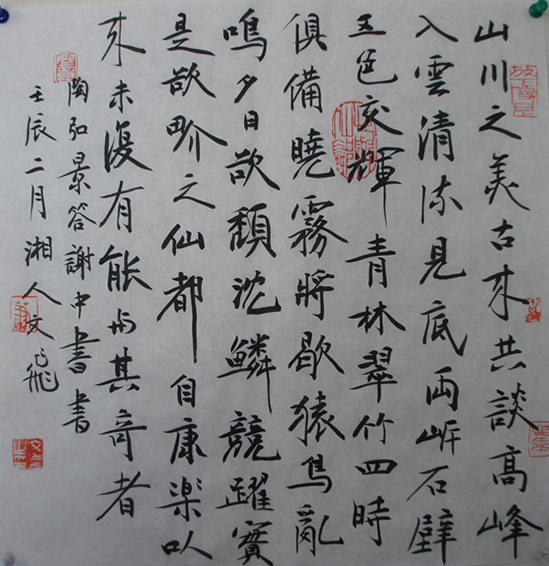 山川之美古来共談高峰
入雲清流見底兩岸石壁
五色交輝青林翠竹四時
俱備曉霧將歇猿鳥亂
鳴夕日欲頹沈鱗競躍實
是欲畍之仙都自康樂以
来未復有能与其奇者
陶弘景答謝中書書
壬辰二月湘人文飛